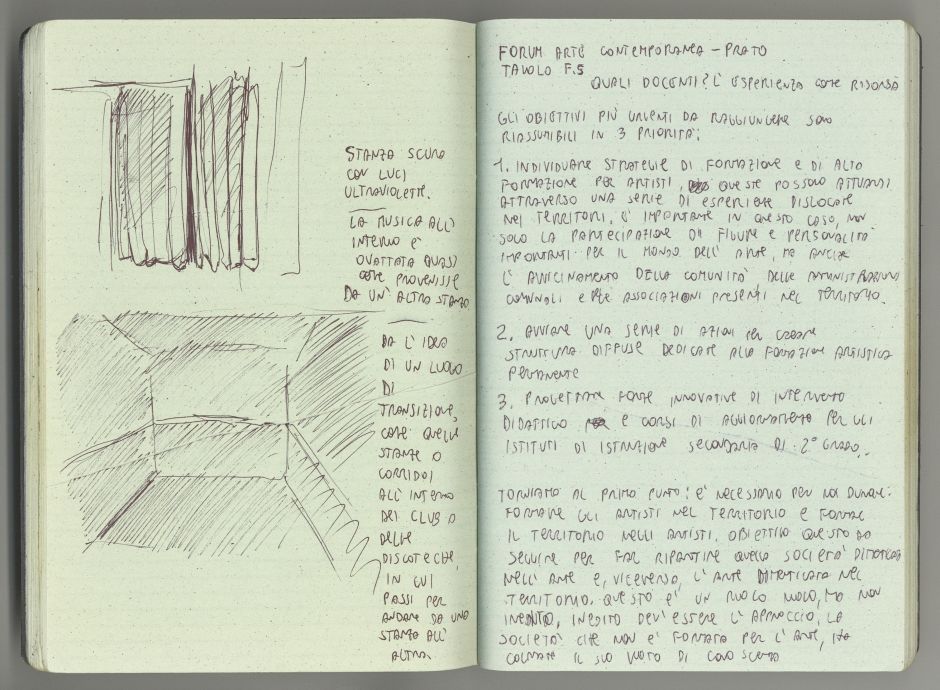 STANZA SCURA
CON LUCI
ULTRAVIOLETTE.
LA MUSICA ALL'
INTERNO È
OVATTATA QUASI
COME PROVENISSE
DA UN'ALTRA STANZA
DA L'IDEA
DI UN LUOGO
DI
TRANSIZIONE,
COME QUELLE
STANZE O
CORRIDOI
ALL'INTERNO
DEI CLUB O
DELLE
DISCOTECHE,
IN CUI
PASSI PER
ANDARE DA UNA
STANZA ALL'
ALTRA.
FORUM ARTE CONTEMPORANEA - PRATO
TAVOLO F.5
QUALI DOCENTI? L'ESPERIENZA COME RISORSA
GLI OBIETTIVI PIÙ URGENTI DA RAGGIUNGERE SONO
RIASSUMIBILI IN 3 PRIORITÀ:
1. INDIVIDUARE STRATEGIE DI FORMAZIONE E DI ALTA
FORMAZIONE PER ARTISTI, QUESTE POSSONO ATTUARSI
ATTRAVERSO UNA SERIE DI ESPERIENZE DISLOCATE
NEI TERRITORI. È IMPORTANTE IN QUESTO CASO, NON
SOLO LA PARTECIPAZIONE DI FIGURE E PERSONALITÀ
IMPORTANTI PER IL MONDO DELL'ARTE, MA ANCHE
L'AVVICINAMENTO DELLA COMUNITÀ DELLE AMMINISTRAZIONI
COMUNALI E DELLE ASSOCIAZIONI PRESENTI NEL TERRITORIO.
2. AVVIARE UNA SERIE DI AZIONI PER CREARE
STRUTTURA DIFFUSE DEDICATE ALLA FORMAZIONE ARTISTICA
PERMANENTE
3. PROGETTARE FORME INNOVATIVE DI INTERVENTO
DIDATTICO E CORSI DI AGGIORNAMENTO PER GLI
ISTITUTI DI ISTRUZIONE SECONDARIA DI 2° GRADO.
TORNIAMO AL PRIMO PUNTO: È NECESSARIO PER NOI
FORMARE GLI ARTISTI NEL TERRITORIO E FORMARE
IL TERRITORIO NEGLI ARTISTI. OBIETTIVO QUESTO DA
SEGUIRE PER FAR RIPARTIRE QUELLA SOCIETÀ DIMENTICATA
NELL'ARTE E, VICEVERSA, L'ARTE DIMENTICATA NEL
TERRITORIO. QUESTO È UN RUOLO NUOVO, MA NON
INEDITO, INEDITO DEV'ESSERE L'APPROCCIO. LA
SOCIETÀ CHE NON È FORMATA PER L'ARTE, HA
COLMARE IL SUO VUOTO DI CONOSCENZA